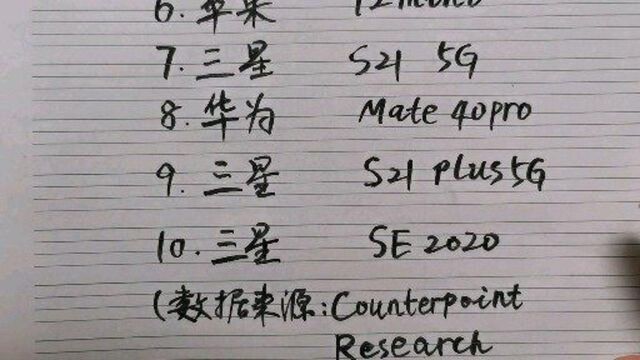 6. 苹果
7. 三星 S21 5G
8. 华为 Mate 40pro
9. 三星 S21 plus5G
10. 三星 SE 2020
(数据来源:Counterpoint
Research